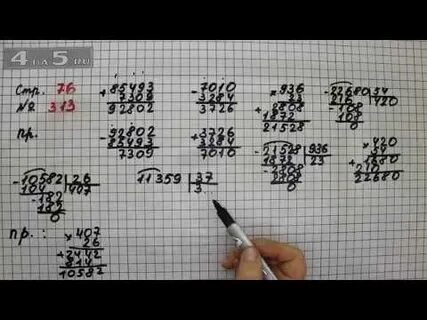 4 на 5.ru
Стр. 76
№ 313
+ 85493
7309
92802
- 7010
3284
3726
× 936
23
+ 2808
1872
21528
- 22680 54
216 420
- 108
108
0
пр.
- 92802
85493
7309
+ 3726
3284
7010
- 21528 936
1872 23
- 2808
2808
0
× 420
54
+ 1680
210
22680
- 10582 26
104 407
- 182
182
0
11359 37
3
пр.:
× 407
26
+ 2442
814
10582